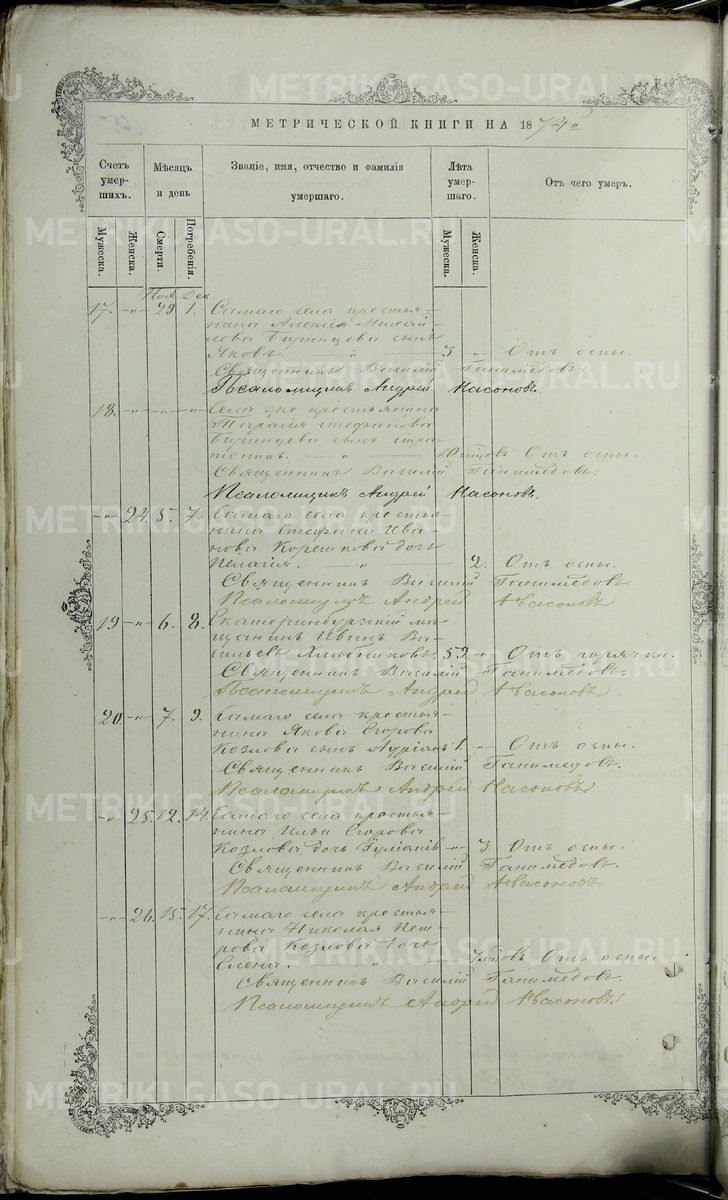 МЕТРИЧЕСКОЙ КНИГИ НА 1874
Счетъ умер-шихъ.
Мѣсяцъ и день
Званіе, имя, отчество и фамилія умершаго.
Лѣта умер-шаго.
Отъ чего умеръ.
Мужеска.
Женска.
Смерти.
Погребенія.
Мужеска.
Женска.
Ноя. Дек.
17. -"- 29 1. Самаго села крестья-
нина Алексія Михай-
лова Биринцева сынъ
Яковъ. " 3 " Отъ оспы.
Священникъ Василій Ганимедовъ.
Псаломщикъ Андрей Насоновъ.
18. -"- -"- -"- Села же крестьянина
Тарасія Стефанова
Биринцева сынъ
" Отъ оспы.
Священникъ Василій Ганимедовъ.
Псаломщикъ Андрей Насоновъ.
-"- 24. 5. 7. Самаго села крестья-
нина Стефана Ива
нова Корешкова дочь
Пелагія. " 2. Отъ оспы.
Священникъ Василий Ганимедовъ
Псаломщикъ Андрей Насоновъ
19 -"- 6. 8. Екатеринбургский мѣ-
щанинъ Иванъ Ва-
сильевъ 59 -"- Отъ горячки.
Священникъ Василій Ганимедовъ.
Псаломщикъ Андрей Насоновъ
20. -"- 7. 9. Самаго села крестья-
нина Якова Егорова
Козлова сынъ 1. " Отъ оспы.
Священникъ Василій Ганимедовъ.
Псаломщикъ Андрей Насоновъ
-"- 25. 12. 14. Самаго села крестья-
нина Ильи Егорова
Козлова дочь -"- 3. Отъ оспы.
Священникъ Василій Ганимедовъ.
Псаломщикъ Андрей Насоновъ
-"- 26. 15. 17. Самаго села крестья-
нина Николая Пет-
рова Козлова дочь
Елена. " Отъ оспы.
Священникъ Василій Ганимедовъ.
Псаломщикъ Андрей Насоновъ
METRIKI.GASO-URAL.RU